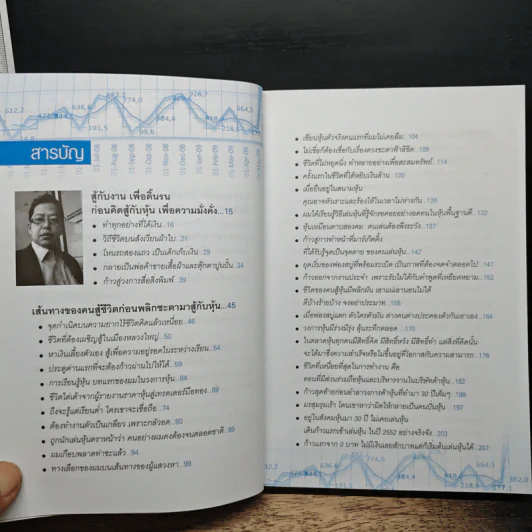 สารบัญ
สู้กับงาน เพื่อดิ้นรน
ก่อนคิดสู้กับหุ้น เพื่อความมั่งคั่ง...15
• ทำทุกอย่างที่ได้เงิน...16
• วิถีชีวิตบนสังเวียนผ้าใบ...21
• โหนรถสองแถว เป็นเด็กเก็บเงิน...29
• กลายเป็นพ่อค้าขายเสื้อผ้าและตุ๊กตาปูนปั้น...34
• ก้าวสู่วงการสื่อสิ่งพิมพ์...39
เส้นทางของคนสู้ชีวิตก่อนพลิกชะตามาสู้กับหุ้น...45
• จุดกำเนิดบนความยากไร้ชีวิตคิดแล้วเหนื่อย...46
• ชีวิตที่ต้องเผชิญสู้ในเมืองหลวงใหญ่...50
• หาเงินเลี้ยงตัวเอง สู้เพื่อความอยู่รอดในระหว่างเรียน...54
• ประตูด่านแรกที่จะต้องก้าวผ่านไปให้ได้...59
• การเรียนรู้หุ้น บทแรกของผมในวงการหุ้น...64
• ชีวิตไต่เต้าจากผู้รายงานราคาหุ้นสู่เทรดเดอร์มือทอง...69
• ถึงจะรู้แต่เรียนต่ำ ใครเขาจะเชื่อถือ...74
• ต้องทำงานตัวเป็นเกลียว เพราะกลัวอด...80
• ถูกนักเล่นหุ้นตราหน้าว่า คนอย่างผมคงต้องจนตลอดชาติ...89
• ผมเกือบพลาดท่าซะแล้ว...94
• ทางเลือกของผมบนเส้นทางของผู้แสวงหา...99
• เซียนหุ้นตัวจริงคนแรกที่ผมไม่เคยลืม...104
• ไม่เชื่อก็ต้องเชื่อกับเรื่องดวงชะตาฟ้าลิขิต...109
• ชีวิตที่ไม่หยุดนิ่ง ทำหลายอย่างเพื่อสะสมทรัพย์...114
• ครั้งแรกในชีวิตที่ได้หยิบเงินล้าน...120
• เมื่อยืนอยู่ในสนามหุ้น
คุณอาจหัวเราะและร้องไห้ในเวลาไม่ห่างกัน...126
• ผมได้เรียนรู้วิธีเล่นหุ้นที่รู้จักรอคอยอย่างอดทนในหุ้นพื้นฐานดี...132
• หุ้นเหมือนดาบสองคม คนเล่นต้องพึงระวัง...137
• ก้าวสู่การทำหน้าที่มาร์เก็ตติ้ง
ที่ได้รับรู้จุดเป็นจุดตาย ของคนเล่นหุ้น...147
• ยุคเริ่มของฟองสบู่ที่พร้อมระเบิด เป็นภาพที่ต้องจดจำตลอดไป...147
• ก้าวออกจากงานประจำ เพราะรับไม่ได้กับคำพูดที่เหยียดหยาม...162
• ชีวิตของคนสู้หุ้นมีพลิกผัน เอาแน่เอานอนไม่ได้
ดีบ้างร้ายบ้าง จงอย่าประมาท...168
• เมื่อฟองสบู่แตก ตัวใครตัวมัน ต่างคนต่างประคองตัวกันเอาเอง...164
• วงการหุ้นมีร่วงมีรุ่ง ลุ้นระทึกตลอด...170
• ในตลาดหุ้นทุกคนมีสิทธิ์คิด มีสิทธิ์หวัง มีสิทธิ์ทำ แต่สิ่งที่คิดนั้น
จะได้มาซึ่งความสำเร็จหรือไม่ขึ้นอยู่ที่โอกาสกับความสามารถ...176
• ชีวิตที่เหนื่อยที่สุดในการทำงาน คือ
ตอนที่มีส่วนร่วมถือหุ้นและบริหารงานในบริษัทค้าหุ้น...182
• ก้าวสุดท้ายก่อนอำลาวงการค้าหุ้นที่ทำมา 30 ปีเต็มๆ...188
• อยู่ในสังคมหุ้นมา 30 ปี ไม่เคยเล่นหุ้น
เดินก้าวแรกเข้าเล่นหุ้น ในปี 2552 อย่างจริงจัง...203
• ก้าวแรกจาก 0 บาท ไม่มีเงินเลยสักบาทแต่ก็เริ่มต้นเล่นหุ้นได้...207